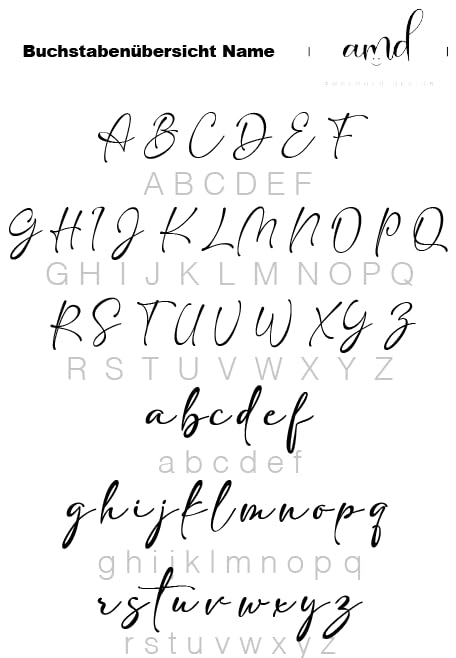 Buchstabenübersicht Name
amd
A B C D E F
A B C D E F
G H I J K L M N O P Q
G H I J K L M N O P Q
R S T U V W X Y Z
R S T U V W X Y Z
a b c d e f
a b c d e f
g h i j k l m n o p q
g h i j k l m n o p q
r s t u v w x y z
r s t u v w x y z